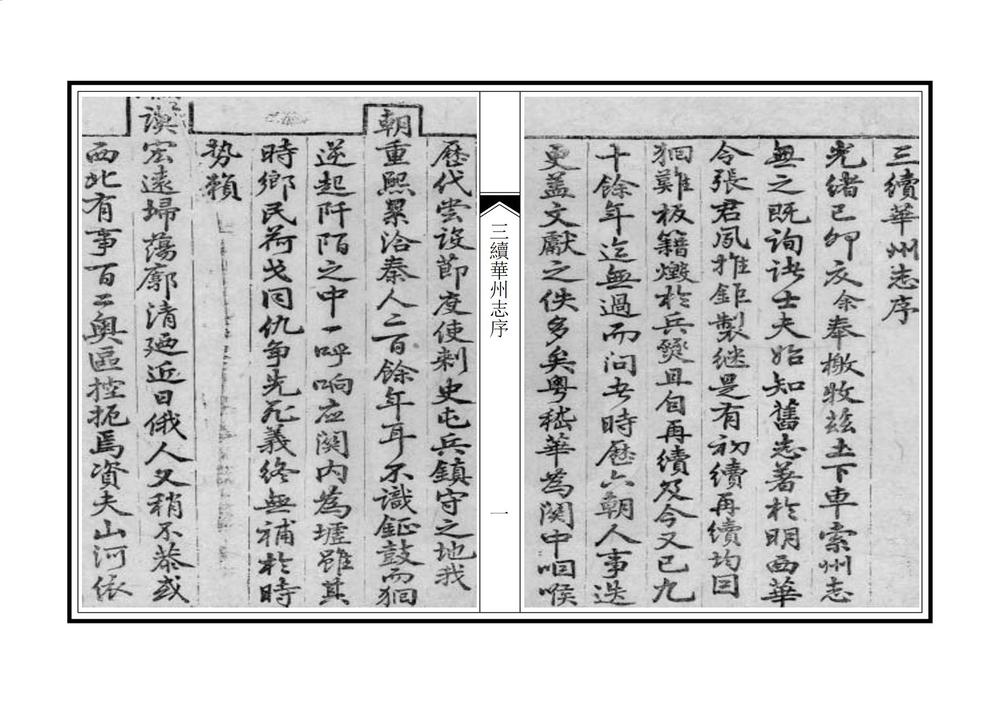 三續華州志序
光緒己卯文余奉檄牧兹土下車索州志
無之既詢諸士夫始知舊志著於明西華
令張君夙推鉅製継是有初續再續均囙
狪難板籍燬於兵燹且自再續及今又已九
十餘年迄無過而问者時歴六朝人事迭
更盖文獻之佚多矣粤嵇華為関中咽喉
三續華州志序
一
歴代尝設節度使刺史屯兵鎮守之地我
朝重熙累洽秦人二百餘年耳不識鉦鼓而狪
逆起阡陌之中一呼响应関内為墟雖其
時鄉民荷戈同仇争先死義終無補於時
勢頼
謨宏遠埽蕩廓清廼近日俄人又稍不恭或
西北有事百二奥區控扼焉資夫山河依